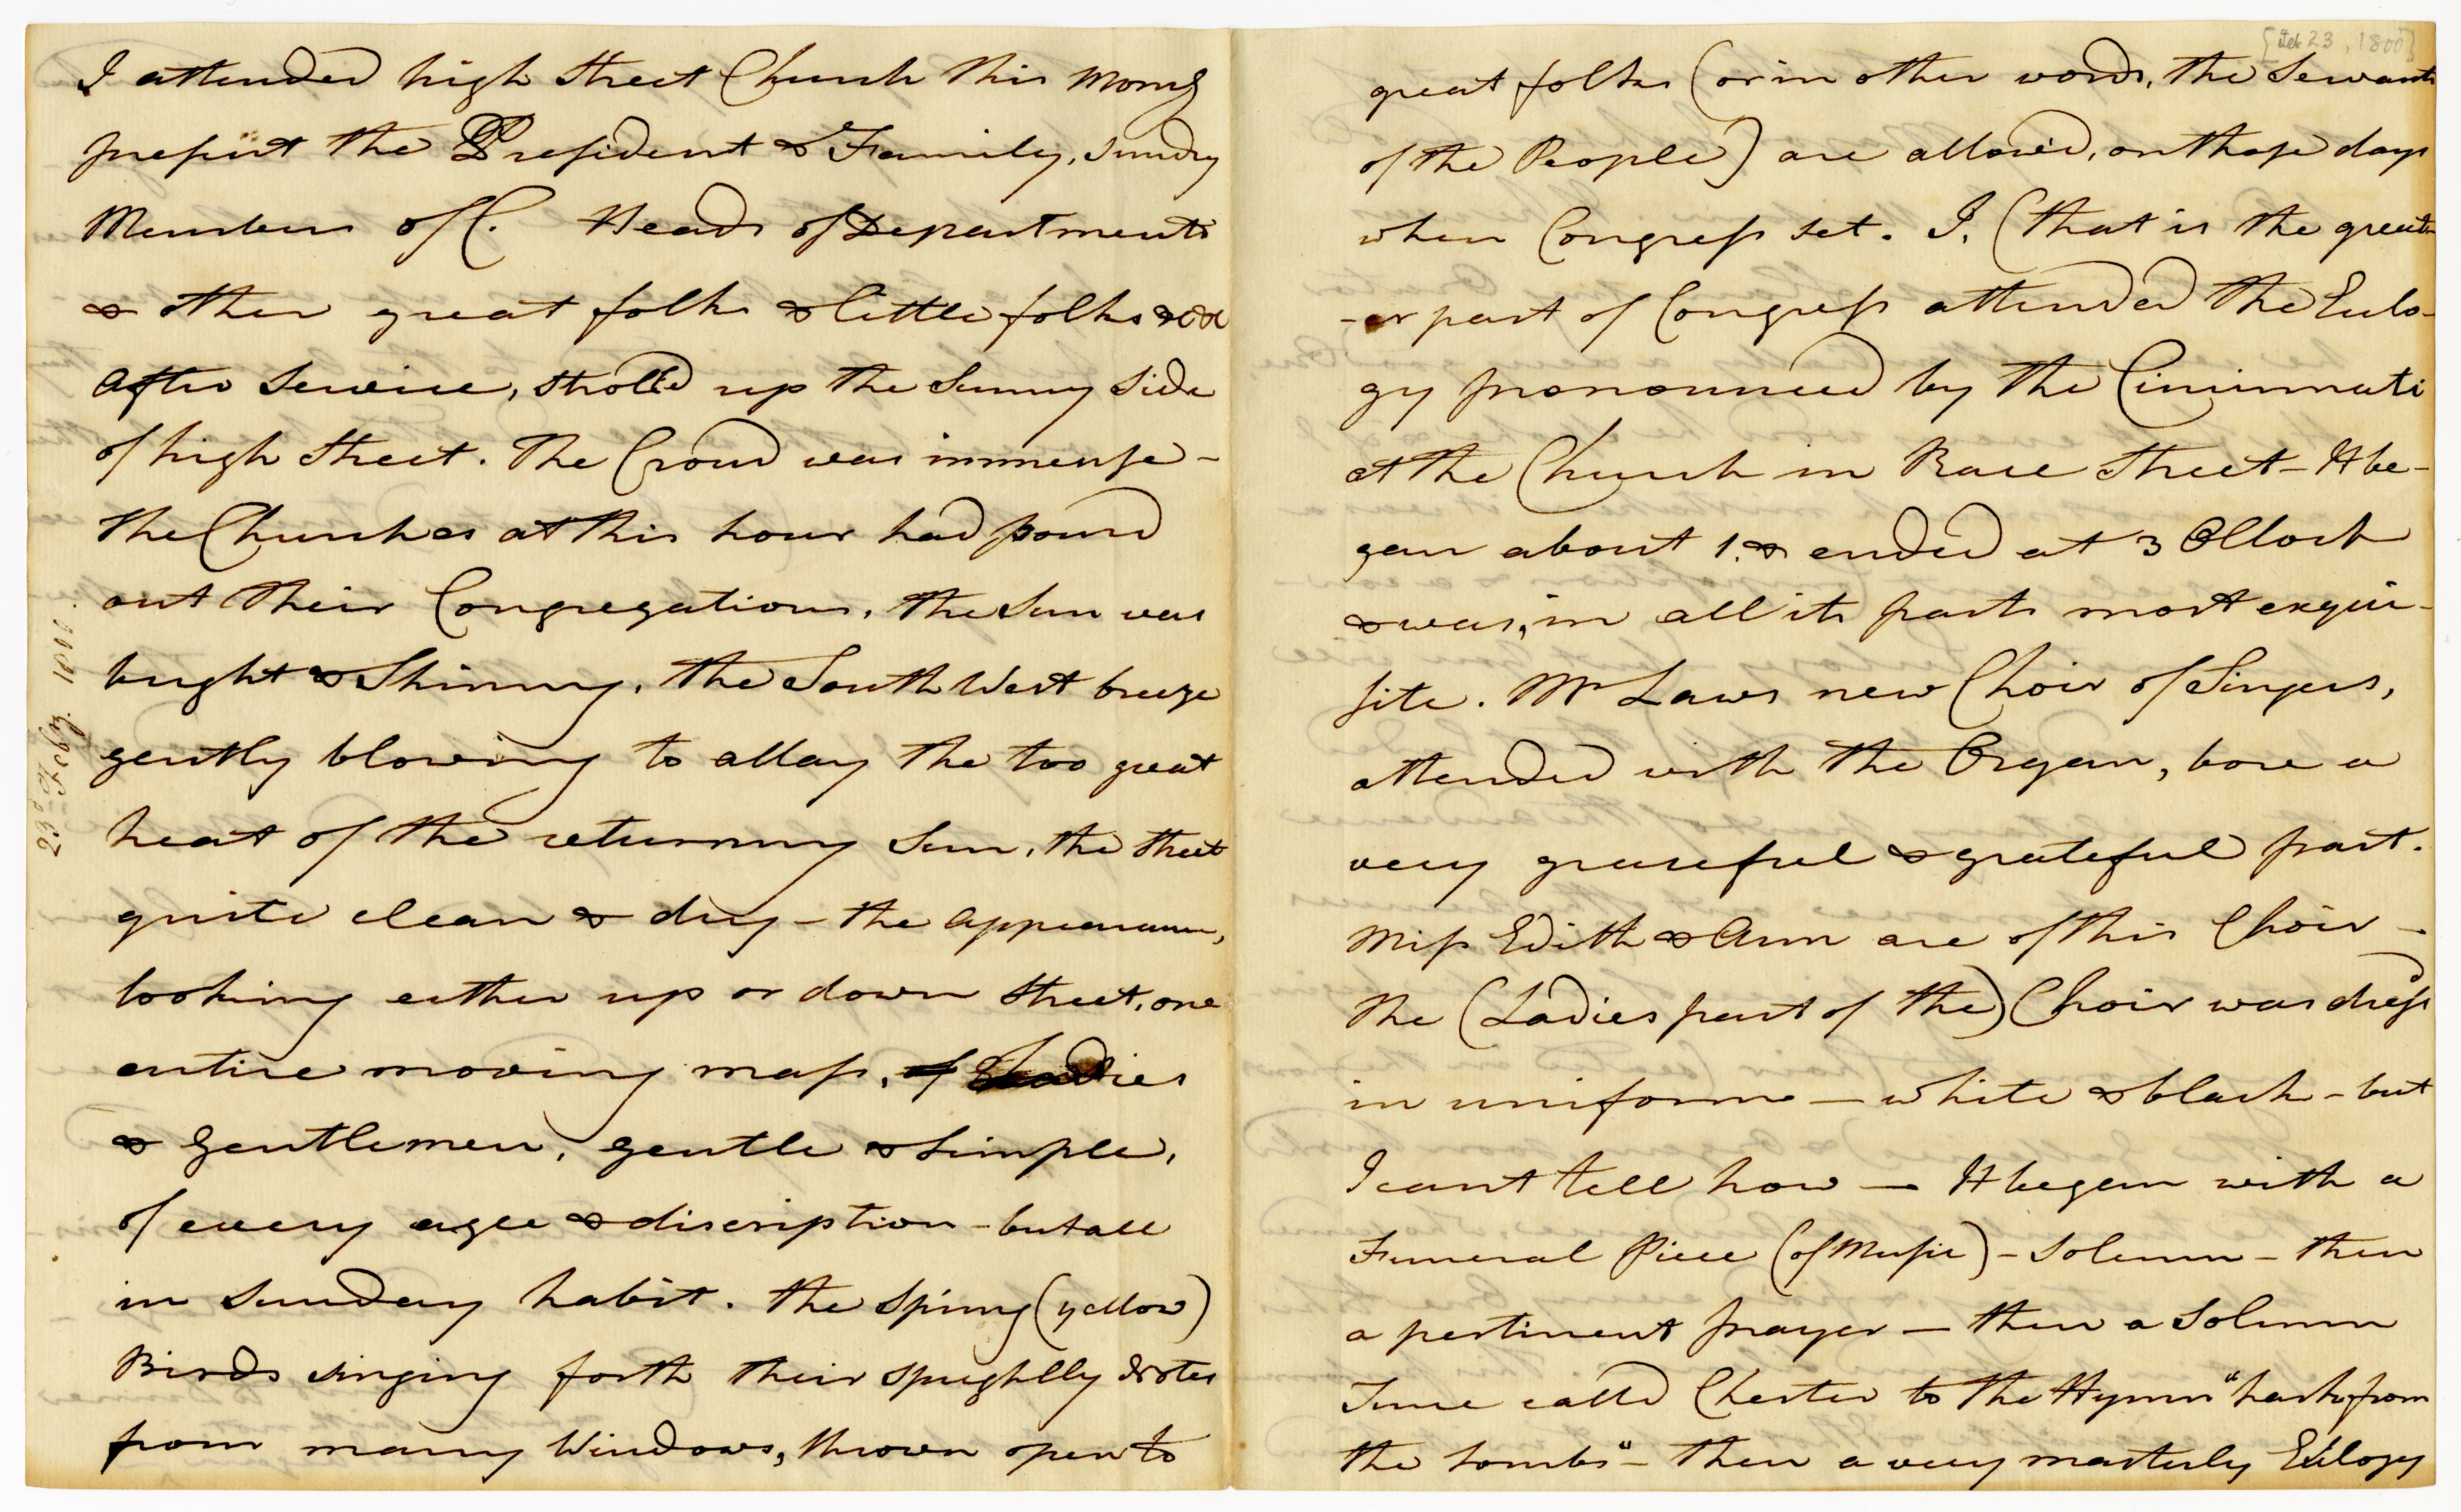 I attended high Street Church this Morng
present the President & Family, sundry
Members of C. Heads of Departments
& other great folks & little folks &c &c
After Service, stroll'd up the Sunny Side
of high Street. The Croud was immense -
the Churches at this hour had pourd
out their Congregations, the Sun was
bright & Shinny, the South West breeze
gently blowing to allay the too great
heat of the returning Sun, the street
quite clean & dry - the appearance,
looking either up or down Street, one
entire moving mass, of Ladies
& Gentlemen, gentle & simple,
of every agee & discription - but all
in Sunday habit. The Spring (yellow)
Birds singing forth their sprightly Notes
from many Windows, thrown open to
23d Feby. 1800.
[Feb 23, 1800]
great folks (or in other words, the Servants
of the People) are allow'd, on those days
when Congress set. I, (that is the great-
-er part of Congress attended the Eulo-
gy pronounced by the Cincinnati
at the Church in Race Street - It be-
gan about 1. & ended at 3 OClock
& was, in all its parts most exqui-
site. Mr Laws new Choir of Singers,
attended with the Organ, bore a
very graceful & grateful part.
Miss Edith & Ann are of this Choir -
the (Ladies part of the) Choir was dress'd
in uniform - white & black - but
I cant tell how - It began with a
Funeral Piece (of Music) - Solemn - then
a pertinent prayer - then a Solemn
Tune calld Chester to the Hymn "hark from
the tombs" - then a very masterly Eulogy